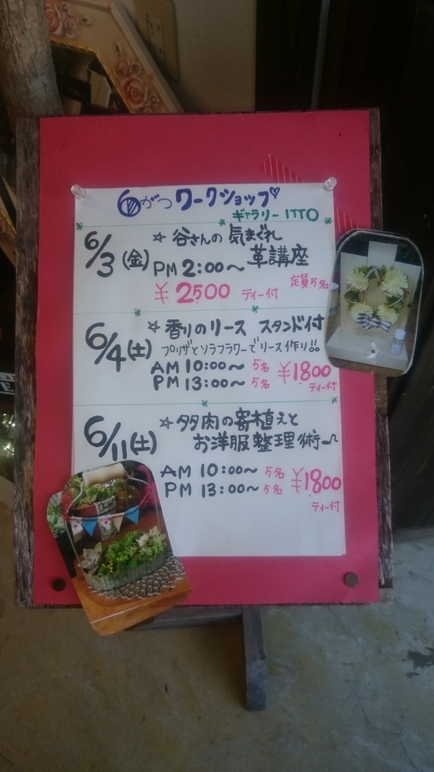 6がつ ワークショップ♡
ギャラリー ITTO
6/3(金) ☆ 谷さんの 気まぐれ
革講座
PM 2:00〜 定員5名
¥2500 ティー付
6/4(土) ☆ 香りのリース スタンド付
プリザとソラフラワーでリース作り!!
AM 10:00〜 5名 ¥1800
PM 13:00〜 5名 ティー付
6/11(土) ☆ 多肉の寄植えと
お洋服整理術
AM 10:00〜 5名 ¥1800
PM 13:00〜 5名
ティー付